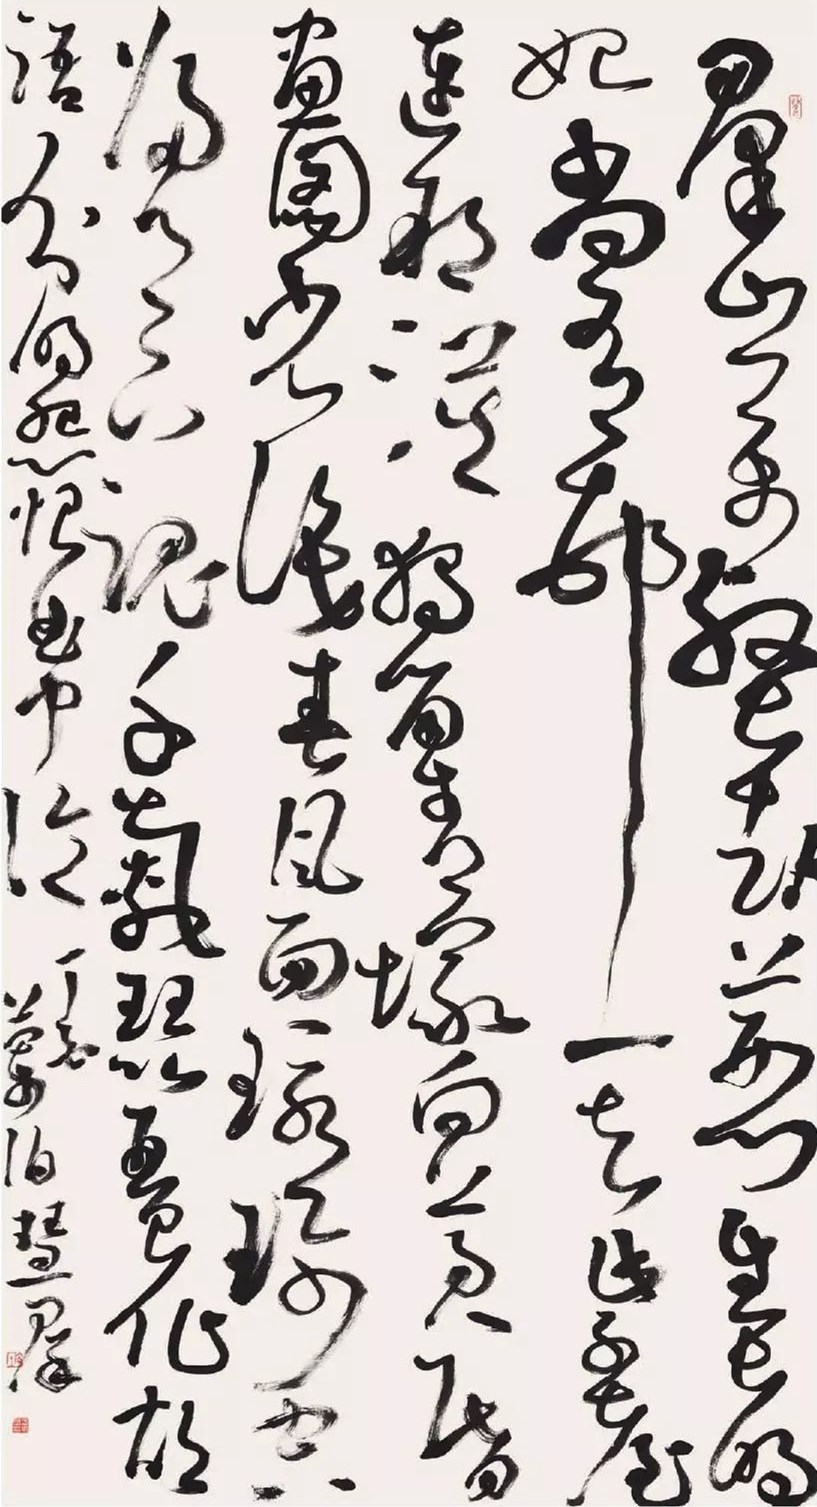 羣山万壑赴荆门生长明
妃尚有邨一去紫臺
连朔漠独留青塚向黄昏
画图省识春风面環珮空
归魂千载琵琶作胡
语分明怨恨曲中论慧羣